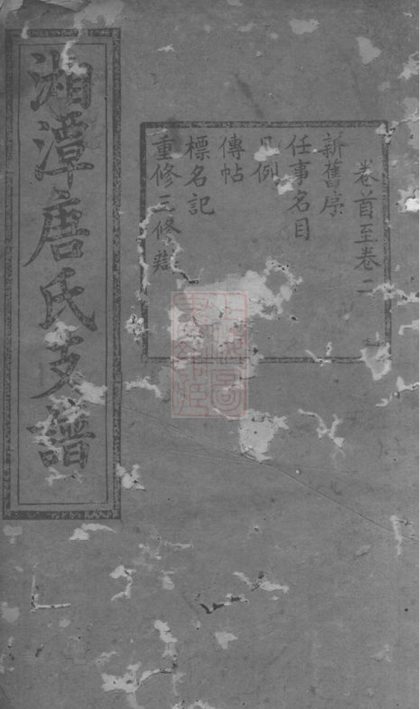 湘潭唐氏支譜
卷首至卷二
新舊序
任事名目
凡例
傳帖
標名記
重修三修